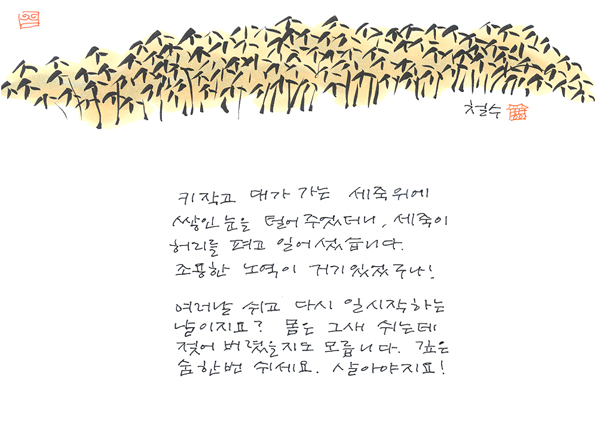 철수
키작고 대가 가는 세죽위에
쌓인 눈을 털어주었더니, 세죽이
허리를 펴고 일어섰습니다.
조용한 노역이 거기있었구나!
여러날 쉬고 다시 일시작하는
날이지요? 몸은 그새 쉬는데
젖어 버렸을지도 모릅니다. 깊은
숨한번 쉬세요. 살아야지요!